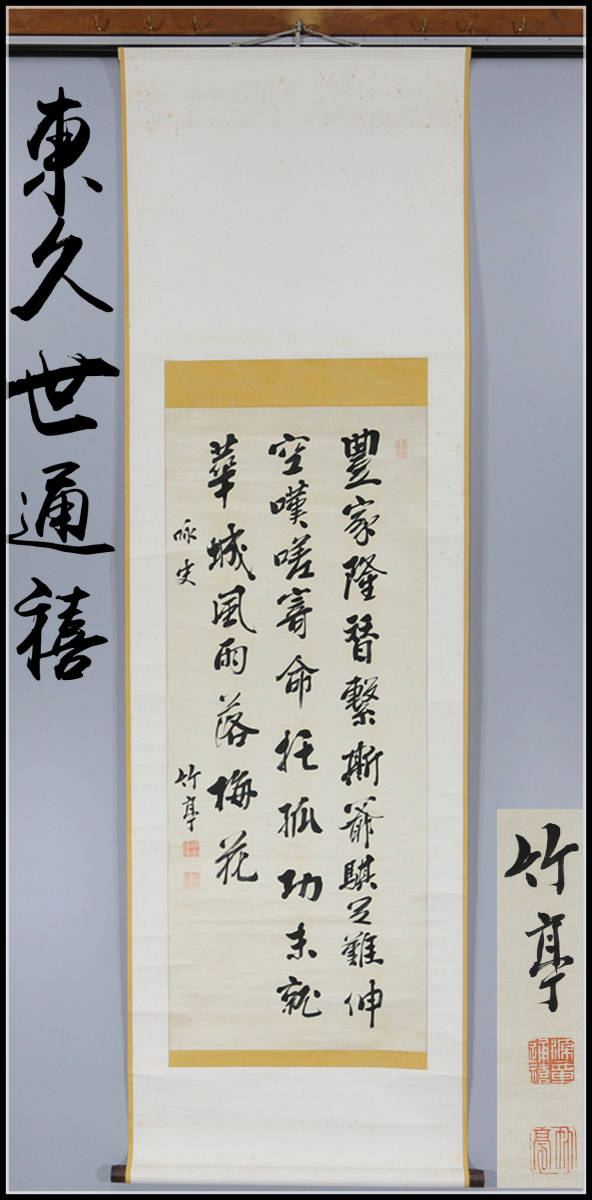 東久世通禧
豊家隆替繋斯爺騏足難伸
空嘆嗟寄命托孤功未就
華城風雨落梅花
咏史
竹亭
竹亭
竹亭